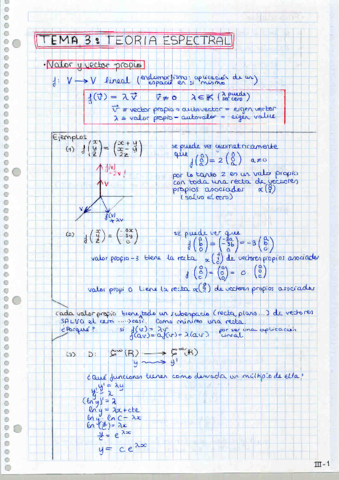 TEMA 3: TEORÍA ESPECTRAL
· Valor y vector propios
f: V → V lineal (endomorfismo: aplicación de un espacio en sí mismo)
f(v⃗) = λ v⃗   v⃗ ≠ 0   λ ∈ K (λ puede ser cero)
v⃗ ≡ vector propio - autovector - eigen vector
λ ≡ valor propio - autovalor - eigen value
Ejemplos
(1) f(x y z) = (x+y x-y 2z)
se puede ver geométricamente que
f(0 0 a) = 2 (0 0 a)   a≠0
por lo tanto 2 es un valor propio
con toda una recta de vectores
propios asociados
(salvo el cero)
(2) f(x y z) = (-3x -3y 0)
se puede ver que
f(a b 0) = (-3a -3b 0) = -3(a b 0)
valor propio -3 tiene la recta de vectores propios asociados
f(0 0 c) = (0 0 0) = 0 · (0 0 c)
valor propio 0 tiene la recta de vectores propios asociados
cada valor propio tiene todo un subespacio (recta, plano...) de vectores
SALVO el cero. Como mínimo una recta.
¿Porqué? si f(v) = λv
f(av) = a f(v) = λ(av)
por ser una aplicación lineal
(3) D: C^∞(R) → C^∞(R)
y → y'
¿Qué funciones tienen como derivada un múltiplo de ella?
y' = λy
y'/y = λ
(ln y)' = λ
ln y = λx + cte
ln y - ln C = λx
ln(y/c) = λx
y/c = e^λx
y = c e^λx
III-1